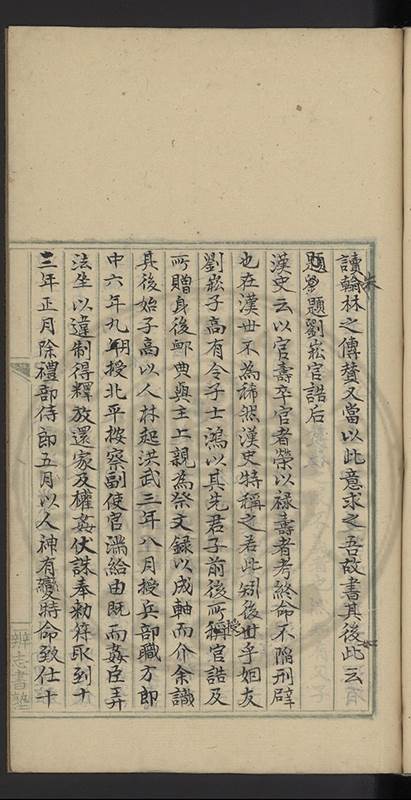 讀翰林之傳贊又當以此意求之吾故書其後此云
題劉崧官誥后
漢史云以官壽卒官者榮以祿壽者考終命不陷刑辟
也在漢世不為稀然漢史特稱之若此矧後世乎姻友
劉崧子高有令子士鴻以其先君子前後所授官誥及
所贈身後邺典與主上親為祭文錄以成軸而介余識
其後始子高以人材起洪武三年八月授兵部職方郎
中六年九月授北平按察副使官滿給由既而姦臣弄
法坐以違制得釋放還家及權姦伏誅奉勑符取到十
三年正月除禮部侍郎五月以人神有變特命致仕十
辨志書塾